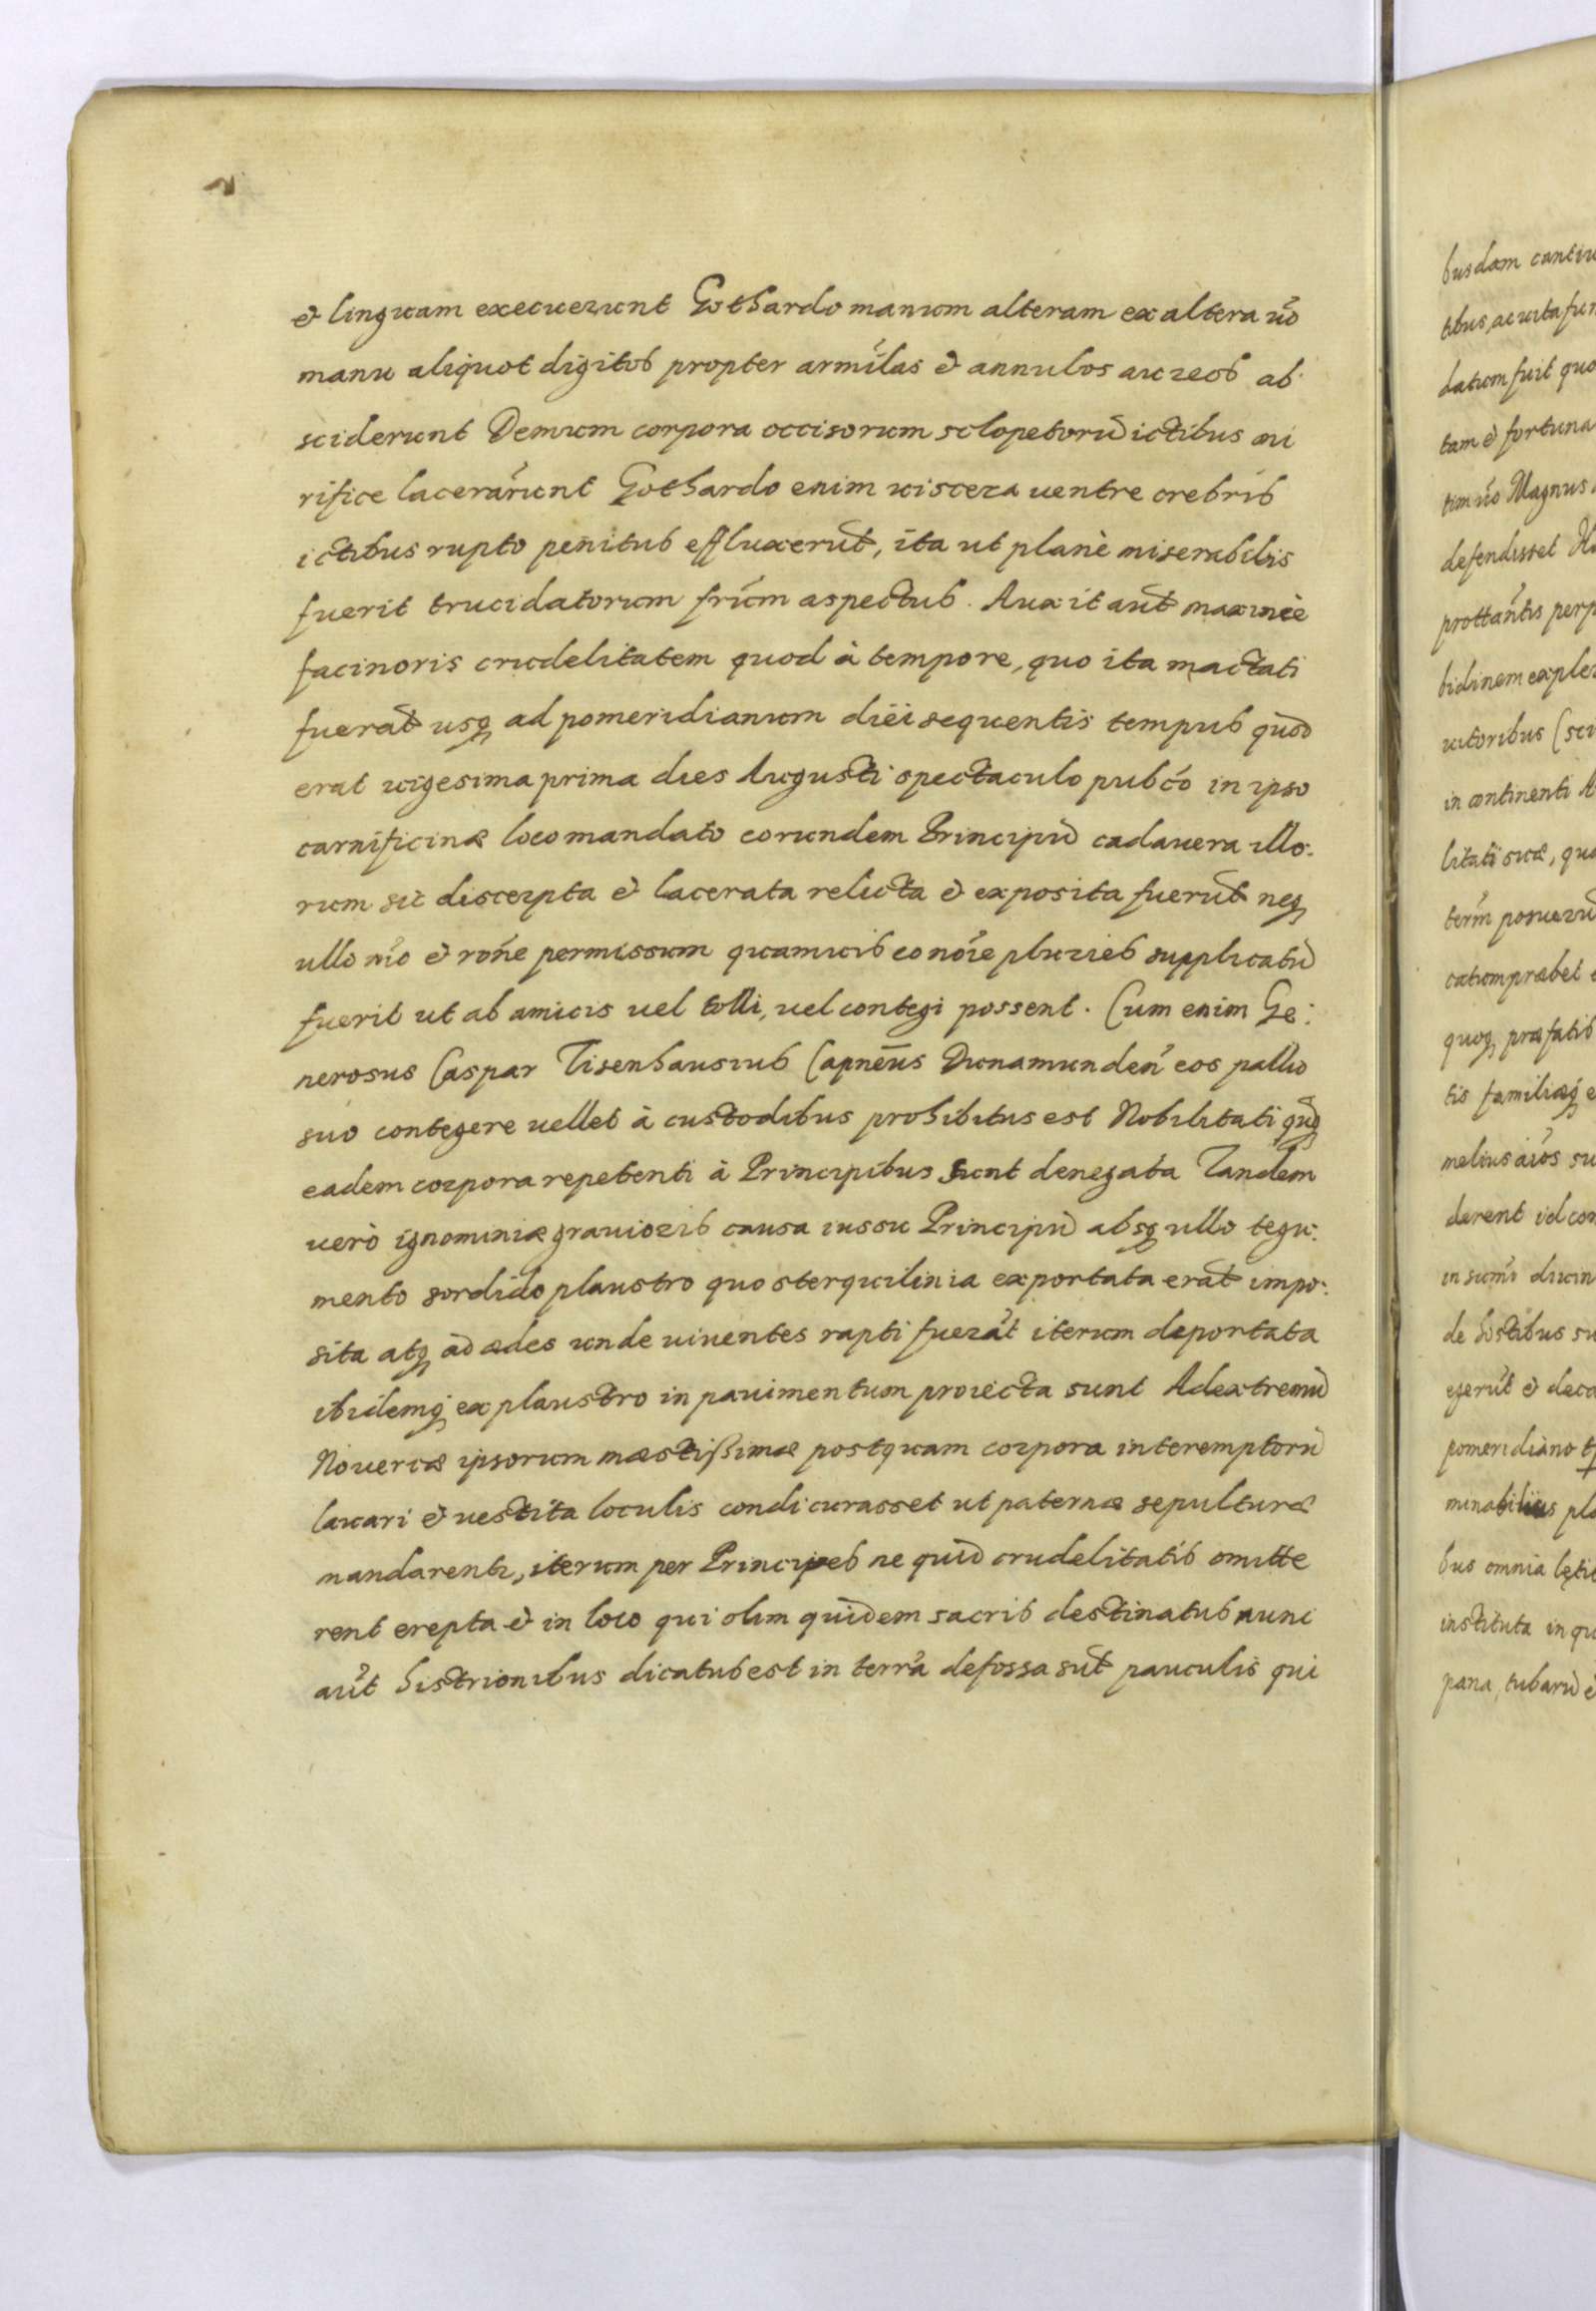 & linguam execuerunt Gothardo manum alteram ex altera uo̅
manu aliquot digitos propter armillas & annulos aureos ab:
sciderunt Demum corpora occisorum sclopetoru̅ ictibus mi
rifice lacerarunt Gothardo enim uiscera uentre crebris
ictibus rupto penitus effluxeru̅t, ita ut planè miserabilis
fuerit trucidatorum fr̅um aspectus. Auxit au̅t maximè
facinoris crudelitatem quod à tempore, quo ita mactati
fuera̅t usq ad pomeridianum diei sequentis tempus quod
erat uigesima prima dies Augusti spectaculo pub̅co in ipso
carnificinæ loco mandato eorundem Principu̅ cadauera illo:
rum sic discerpta & lacerata relicta & exposita fueru̅t neq
ullo mo̅ & ro̅ne permissum quamuis eo no̅ie pluries supplicatu̅
fuerit ut ab amicis uel tolli, uel contegi possent. Cum enim Ge:
nerosus Caspar Tisenhausius Capne̅us Dunamunden̅ eos pallio
suo contegere uellet à custodibus prohibitus est Nobilitati quoq
eadem corpora repetenti à Principibus sunt denegata Tandem
uerò ignominiæ grauioris causa iussu Principu̅ absq ullo tegu:
mento sordido plaustro quo sterquilinia exportata era̅t impo:
sita atq ad ædes unde uiuentes rapti fuera̅t iterum deportata
ibidemq ex plaustro in pauimentum proiecta sunt Ad extremu̅
Nouercæ ipsorum mæstißimæ postquam corpora interemptoru̅
lauari & uestita loculis condi curasset ut paternæ sepulturæ
mandarentr, iterum per Principes ne quid crudelitatis omitte
rent erepta & in loco qui olim quidem sacris destinatus nunc
au̅t histrionibus dicatus est in terra̅ defossa su̅t pauculis qui
busdam
tibus, ac uita
datum fuit
tam & fortuna
Magnus
defendisset
litati suæ,
quoq præfatis
melius
darent uel
de hostibus
& 
bus omnia
instituta in
pana, tubaru̅